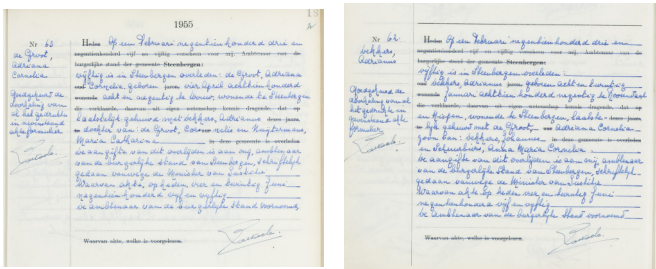 1955
Nr 63
de Groot,
Adriana
Cornelia
Goedgekeurd de
Heden Op een Februari negentienhonderd drie en
negentienhonderd vijf en vijftig verscheen voor mij, Ambtenaar van de
burgerlijke stand der gemeente Steenbergen:
vijftig is in Steenbergen overleden: de Groot, Adriana
Cornelia, geboren vier April achttienhonderd
acht en negentig te wonende te Steenbergen
de verklaarde, daarvan uit eigen wetenschap kennis dragende, dat op
laatstelijk gehuwd met Bekkers, Adrianus
dochter van de Groot, Cornelis en
Maria Catharina
in deze gemeente is overleden
De aangifte van dit overlijden is aan mij, ambtenaar
van de burgerlijke stand van Steenbergen, schriftelijk
gedaan vanwege de Minister van Justitie
Waarvan akte, op heden vier en twintig Juni
negentienhonderd vijf en vijftig.
De ambtenaar van de burgerlijke stand voornoemd,
Waarvan akte, welke is voorgelezen.
Nr 62
Bekkers,
Adrianus
Goedgekeurd de
Heden Op een Februari negentienhonderd drie en
negentienhonderd vijf en vijftig verscheen voor mij, Ambtenaar van de
burgerlijke stand der gemeente Steenbergen:
vijftig is in Steenbergen overleden:
Bekkers, Adrianus, geboren acht en twintig
Januari achttienhonderd negentig te
de verklaarde, daarvan uit eigen wetenschap kennis dragende, dat op
en Niervaart, wonende te Steenbergen, laatste-
lijk gehuwd met de Groot, Adriana Cornelia
zoon van Bekkers, Johannes
en Anna Maria Cornelia
De aangifte van dit overlijden is aan mij, ambtenaar
van de burgerlijke stand van Steenbergen, schriftelijk
gedaan vanwege de Minister van Justitie
Waarvan akte op heden vier en twintig Juni
negentienhonderd vijf en vijftig
De ambtenaar van de burgerlijke stand voornoemd
Waarvan akte, welke is voorgelezen.